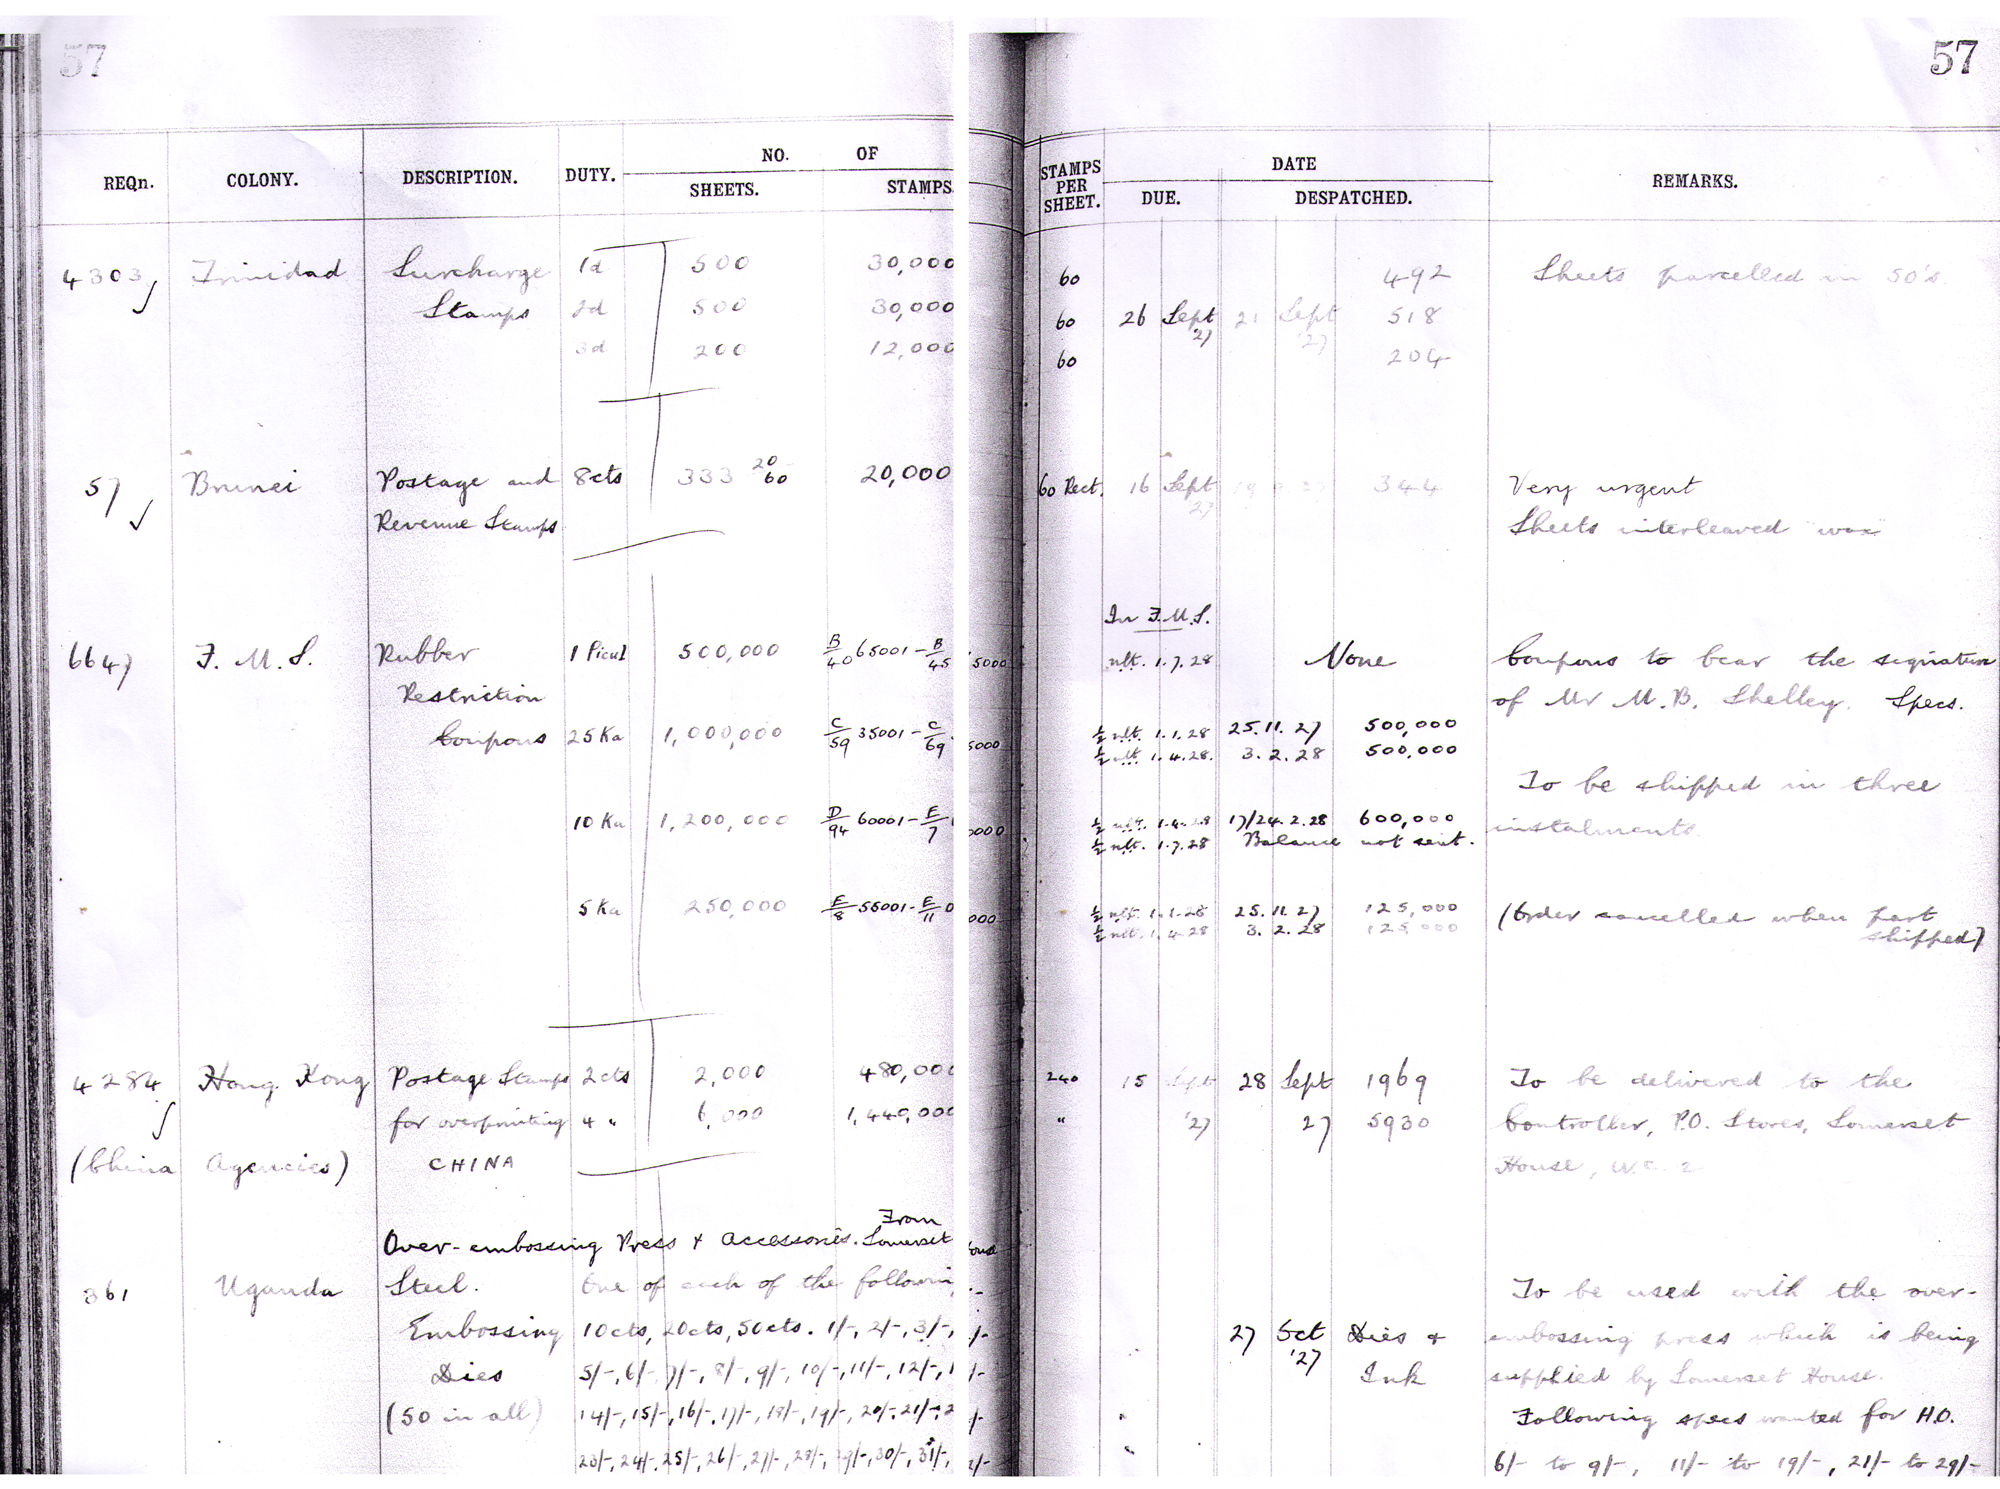 57
57
REQn. COLONY. DESCRIPTION. DUTY. NO. OF
SHEETS. STAMPS
STAMPS PER SHEET. DATE
DUE. DESPATCHED. REMARKS.
4303 Trinidad Surcharge 1d 500 30,000 60 492 Sheets parcelled in 50's.
Stamps 2d 500 30,000 60 26 Sept '27 21 Sept '27 518
3d 200 12,000 60 204
57 Brunei Postage and 8cts 333 20/60 20,000 60 Rect. 16 Sept '27 344 Very urgent
Revenue Stamps Sheets interleaved wax
In F.M.S.
6647 F. M. S. Rubber 1 Picul 500,000 B/40 65001 - B/45 5000 nlt. 1.7.28 None Coupons to bear the signature
Restriction of Mr M.B. Shelley. Specs.
Coupons 25 Ka 1,000,000 C/59 35001 - C/69 5000 ½ nlt. 1.1.28 25.11.27 500,000
½ nlt. 1.4.28. 3.2.28 500,000
To be shipped in three
10 Ka 1,200,000 D/94 60001 - E/7 0000 ½ nlt. 1.4.28 17/24.2.28 600,000 instalments.
½ nlt. 1.7.28 Balance not sent.
5 Ka 250,000 E/8 55001 - E/11 0000 ½ nlt. 1.1.28 25.11.27 125,000 (Order cancelled when part
½ nlt. 1.4.28 3.2.28 125,000 shipped)
4284 Hong Kong Postage Stamps 2cts 2,000 480,000 240 15 Sept 28 Sept 1969 To be delivered to the
for overprinting 4 " 6,000 1,440,000 " '27 27 5930 Controller, P.O. Stores, Somerset
(China Agencies) CHINA House, W.C.2
Over-embossing Press & Accessories. From Somerset
361 Uganda Steel. One of each of the following To be used with the over-
Embossing 10cts, 20cts, 50cts. 1/-, 2/-, 3/-, 27 Oct '27 Dies & embossing press which is being
Dies 5/-, 6/- 7/-, 8/-, 9/-, 10/-, 11/-, 12/-, Ink supplied by Somerset House.
(50 in all) 14/-, 15/-, 16/-, 17/-, 18/-, 19/-, 20/-, 21/-, Following specs wanted for H.O.
23/-, 24/-, 25/-, 26/-, 27/-, 28/-, 29/-, 30/-, 31/-, 6/- to 9/-, 11/- to 19/-, 21/- to 29/-